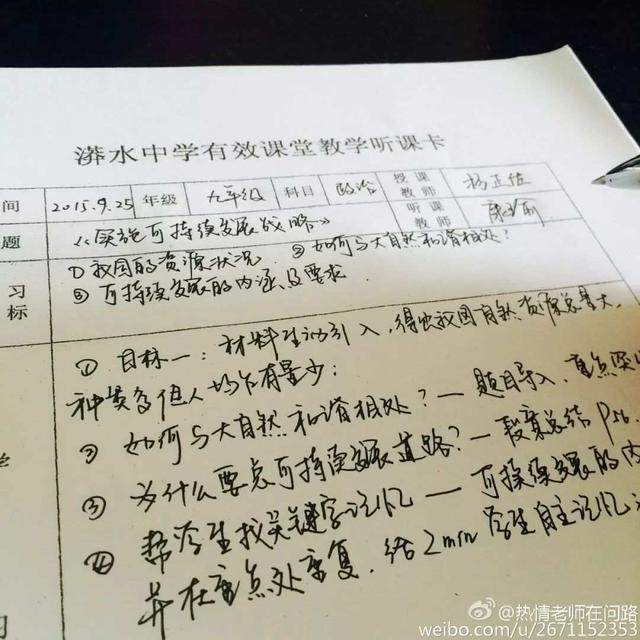 漭水中学有效课堂教学听课卡
间 2015.9.25 年级 九年级 科目 政治 授课教师
听课教师
题 《实施可持续发展战略》
①我国的资源状况 ②如何与大自然和谐相处?
习标 ③可持续发展的内涵及要求
① 目标一:材料生动引入,得出我国自然资源总量大,
种类多但人均占有量少;
② 如何与大自然和谐相处?— 题目导入,重点突
③ 为什么要走可持续发展道路?—
④ 帮学生找关键字记忆 — 可持续发展的内
并在重点处重复,给2min学生自主记忆
@热情老师在问路
weibo.com/u/2671152353